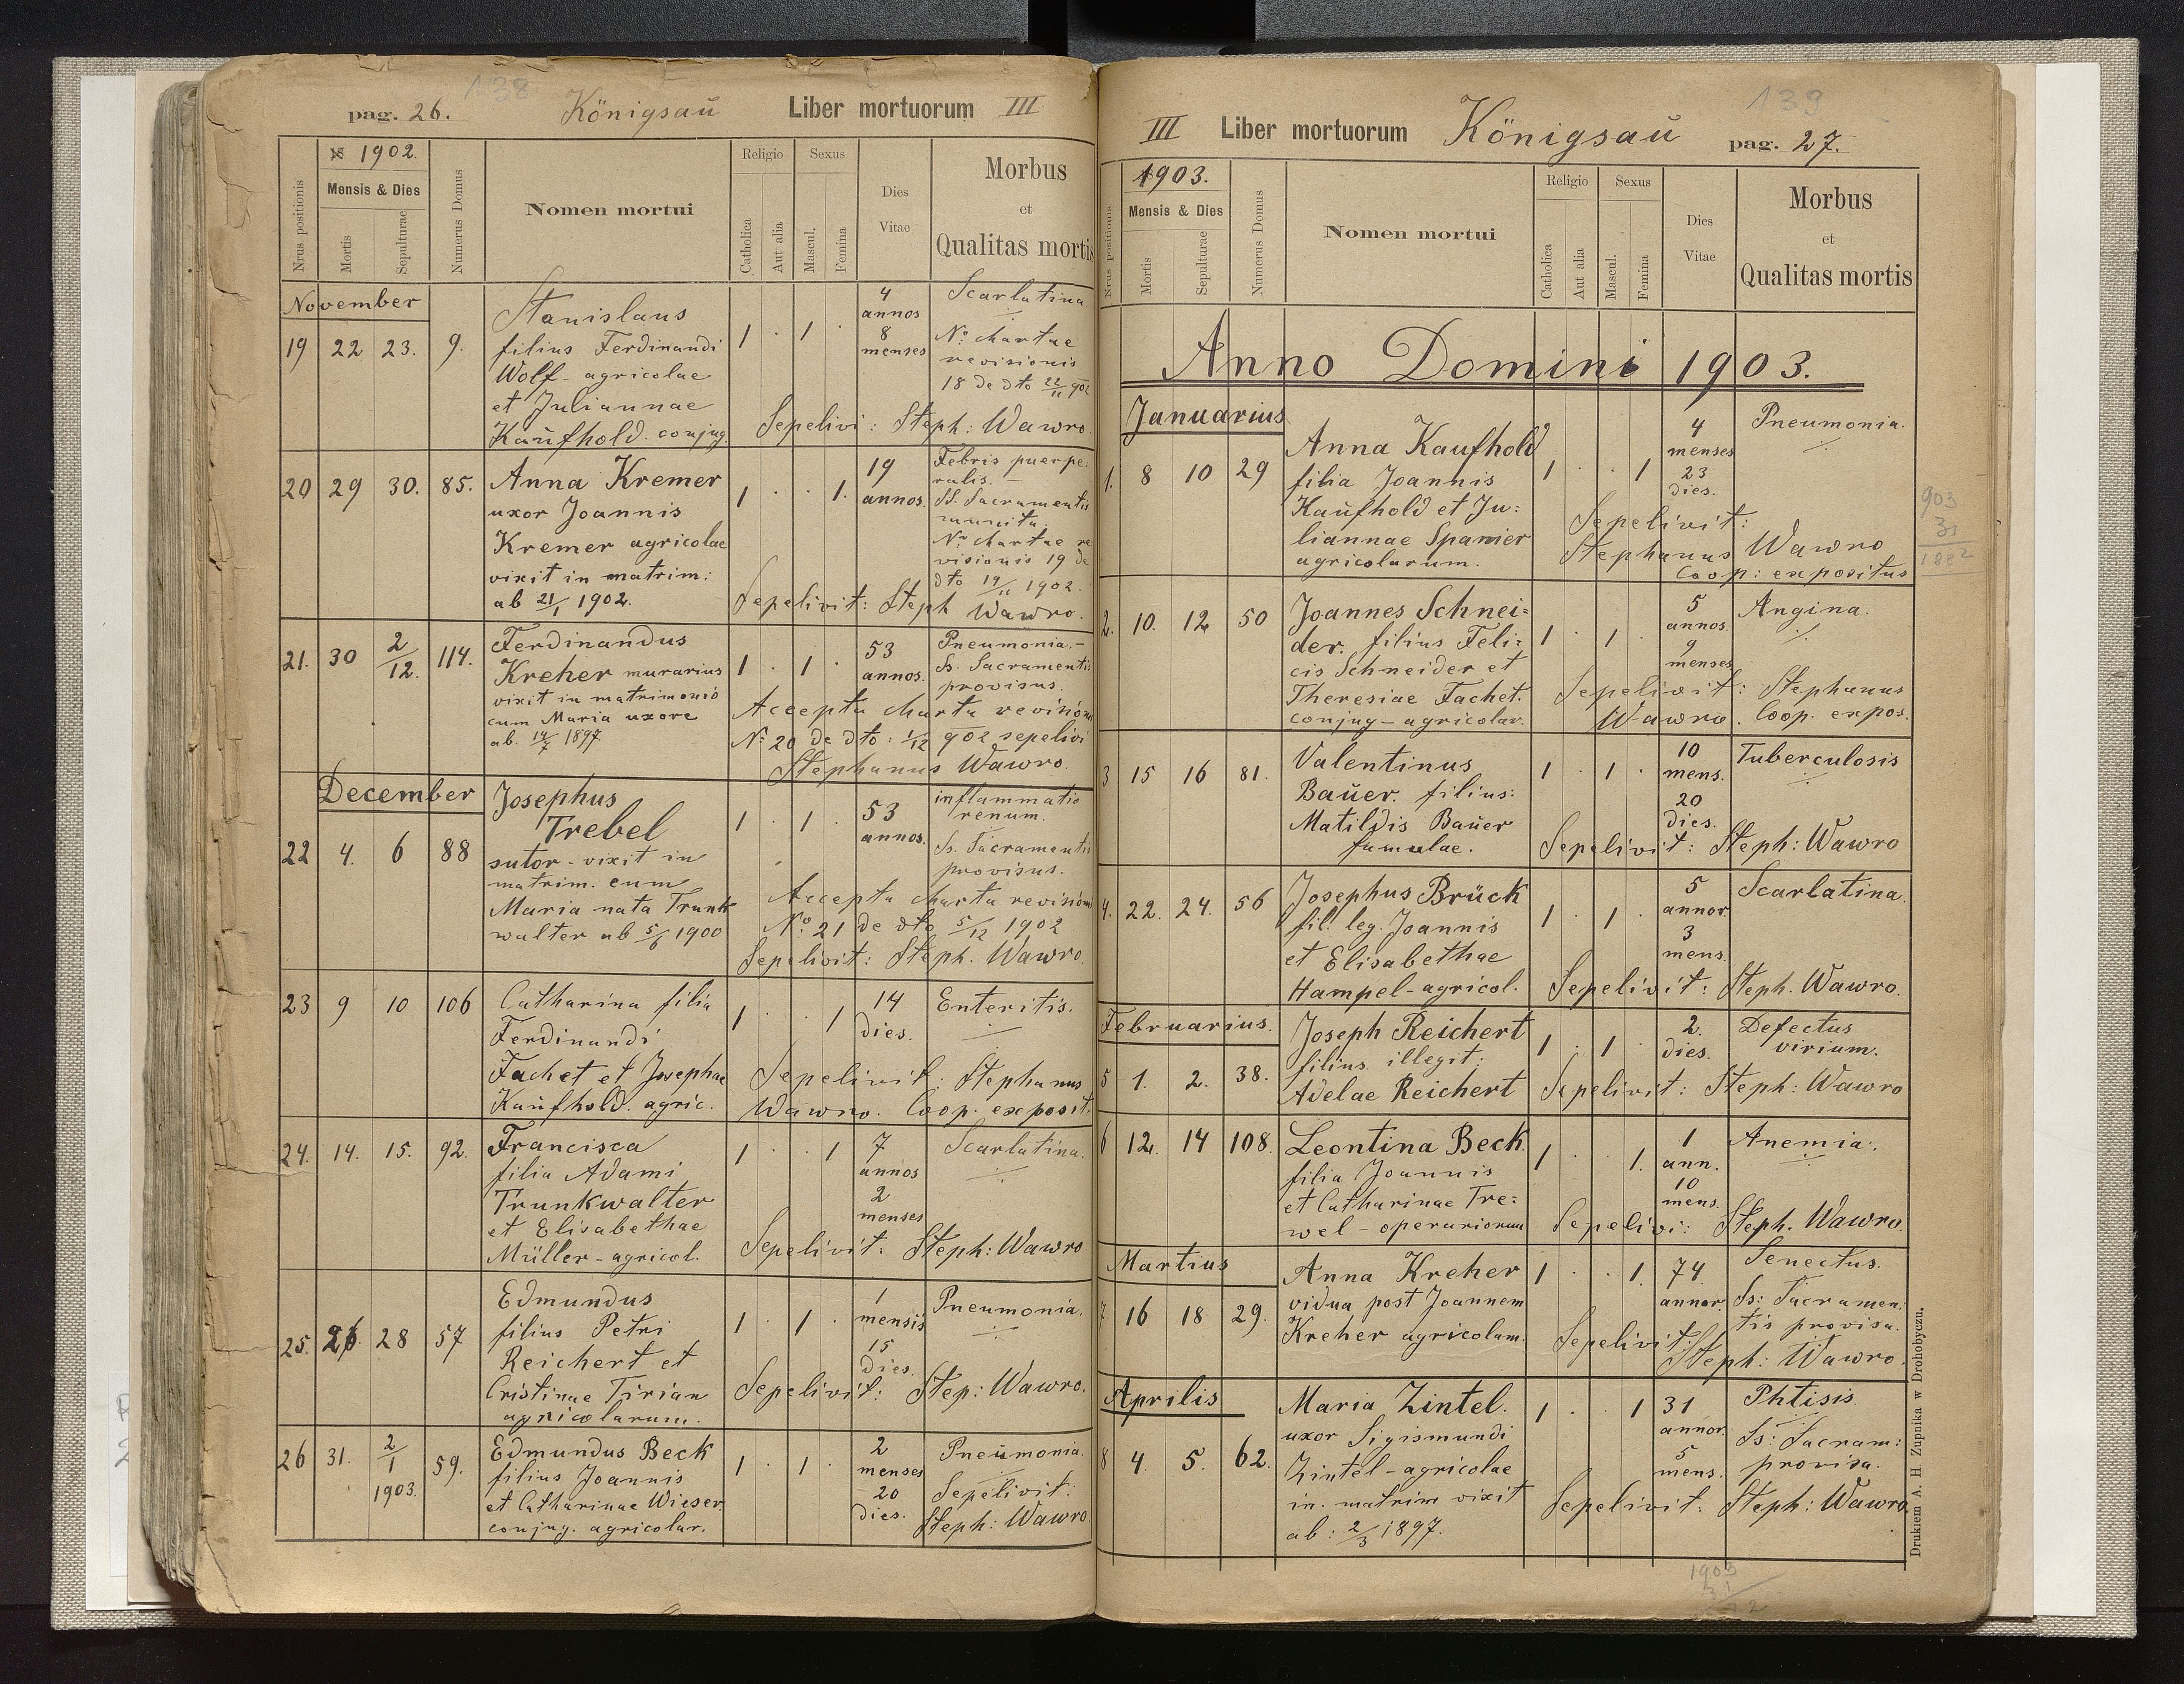 138
pag. 26. Königsaŭ Liber mortuorum III
1902.
Mensis & Dies
Nrus positionis
Mortis
Sepulturae
Numerus Domus
Nomen mortui
Religio
Sexus
Catholica
Aut alia
Mascul.
Femina
Dies
Vitae
Morbus
et
Qualitas mortis
November
19 22 23. 9.
Stanislaus
filius Ferdinandi
Wolf - agricolae
et Juliannae
Kaŭfhold. conjug.
1 . 1 .
4
annos
8
menses
Scarlatina
No: chartae
revisionis
18 de dto 22/11 902
Sepelivi: Steph: Wawro.
20 29 30. 85.
Anna Kremer
uxor Joannis
Kremer agricolae
vixit in matrim:
ab 21/1 1902.
1 . . 1.
19
annos.
Febris puerpe-
ralis. -
SS. Sacramentis
munita.
No: chartae re
visionis 19 de
dto 19/11 1902.
Sepelivit: Steph Wawro.
21. 30 2/12. 114.
Ferdinandus
Kreher murarius
vixit in matrimonio
cum Maria uxore
ab. 14/7 1897
1 . 1 .
53
annos.
Pneumonia. -
Ss. Sacramentis
provisus.
Accepta charta revision
No: 20 de dto: 1/12 902 sepelivi
Stephanus Wawro.
December
22 4. 6 88
Josephus
Trebel
sutor - vixit in
matrim. cum
Maria nata Trunk
walter ab 5/6 1900
1 . 1 .
53
annos.
inflammatio
renum.
Ss. Sacramentis
provisus.
Accepta charta revision
No: 21 de dto 5/12 1902
Sepelivit: Steph. Wawro.
23 9 10 106
Catharina filia
Ferdinandi
Fachet et Josephae
Kaŭfhold. agric.
1 . . 1
14
dies.
Enteritis.
Sepelivit: Stephanus
Wawro. Coop. exposit.
24. 14. 15. 92.
Francisca
filia Adami
Trunkwalter
et Elisabethae
Müller - agricol.
1 . . 1
7
annos
2
menses
Scarlatina.
Sepelivit: Steph: Wawro.
25. 26. 28 57
Edmundus
filius Petri
Reichert et
Cristinae Tirian
agricolarum.
1 . 1 .
1
mensis
15
dies.
Pneumonia.
Sepelivit: Step: Wawro.
26 31. 2/1 1903. 59.
Edmundus Beck
filius Joannis
et Catharinae Wieser
conjug. agricolar.
1 . 1 .
2
menses
20
dies.
Pneŭmonia.
Sepelivit:
Steph: Wawro.
139
III Liber mortuorum Königsaŭ pag. 27.
1903.
Mensis & Dies
Nrus positionis
Mortis
Sepulturae
Numerus Domus
Nomen mortui
Religio
Sexus
Catholica
Aut alia
Mascul.
Femina
Dies
Vitae
Morbus
et
Qualitas mortis
Anno Domini 1903.
Januarius
1. 8 10 29
Anna Kaufhold
filia Joannis
Kaŭfhold et Ju:
liannae Spanier
agricolarum.
1 . . 1
4
menses
23
dies.
Pneumonia.
Sepelivit:
Stephanus Wawro
Coop: expositus
903
31
1882
2. 10. 12 50
Joannes Schnei=
der. filius Feli:
cis Schneider et
Theresiae Fachet.
conjug - agricolar.
1 . 1 .
5
annos.
9
menses
Angina.
Sepelivit: Stephanus
Wawro. Coop. expos.
3 15 16 81.
Valentinus
Baŭer. filius:
Matildis Baŭer
famulae.
1 . 1 .
10
mens.
20
dies.
Tuberculosis
Sepelivit: Steph: Wawro
4. 22. 24. 56
Josephus Brück
fil. leg. Joannis
et Elisabethae
Hampel - agricol.
1 . 1 .
5
annor.
3
mens.
Scarlatina.
Sepelivit: Steph. Wawro.
Februarius.
5 1. 2. 38.
Joseph Reichert
filius illegit:
Adelae Reichert
1 . 1 .
2.
dies.
Defectus
virium.
Sepelivit: Steph: Wawro
6 12. 14 108.
Leontina Beck.
filia Joannis
et Catharinae Tre=
wel - operariorum
1 . . 1.
1
ann.
10
mens.
Anemia.
Sepelivi: Steph. Wawro.
Martius
7 16 18 29.
Anna Kreher
vidua post Joannem
Kreher agricolam.
1 . . 1.
74.
annor.
Senectus.
Ss: Sacramen:
tis provisa.
Sepelivit:
Steph: Wawro.
Aprilis
8 4. 5. 62.
Maria Zintel.
uxor Sigismundi
Zintel - agricolae
in. matrim vixit
ab: 2/3 1897.
1 . . 1
31
annor.
5
mens.
Phtisis.
Ss: Sacram:
provisa.
Sepelivit: Steph: Wawro
Drukiem A. H. Żupnika w Drohobyczu.
1903
31